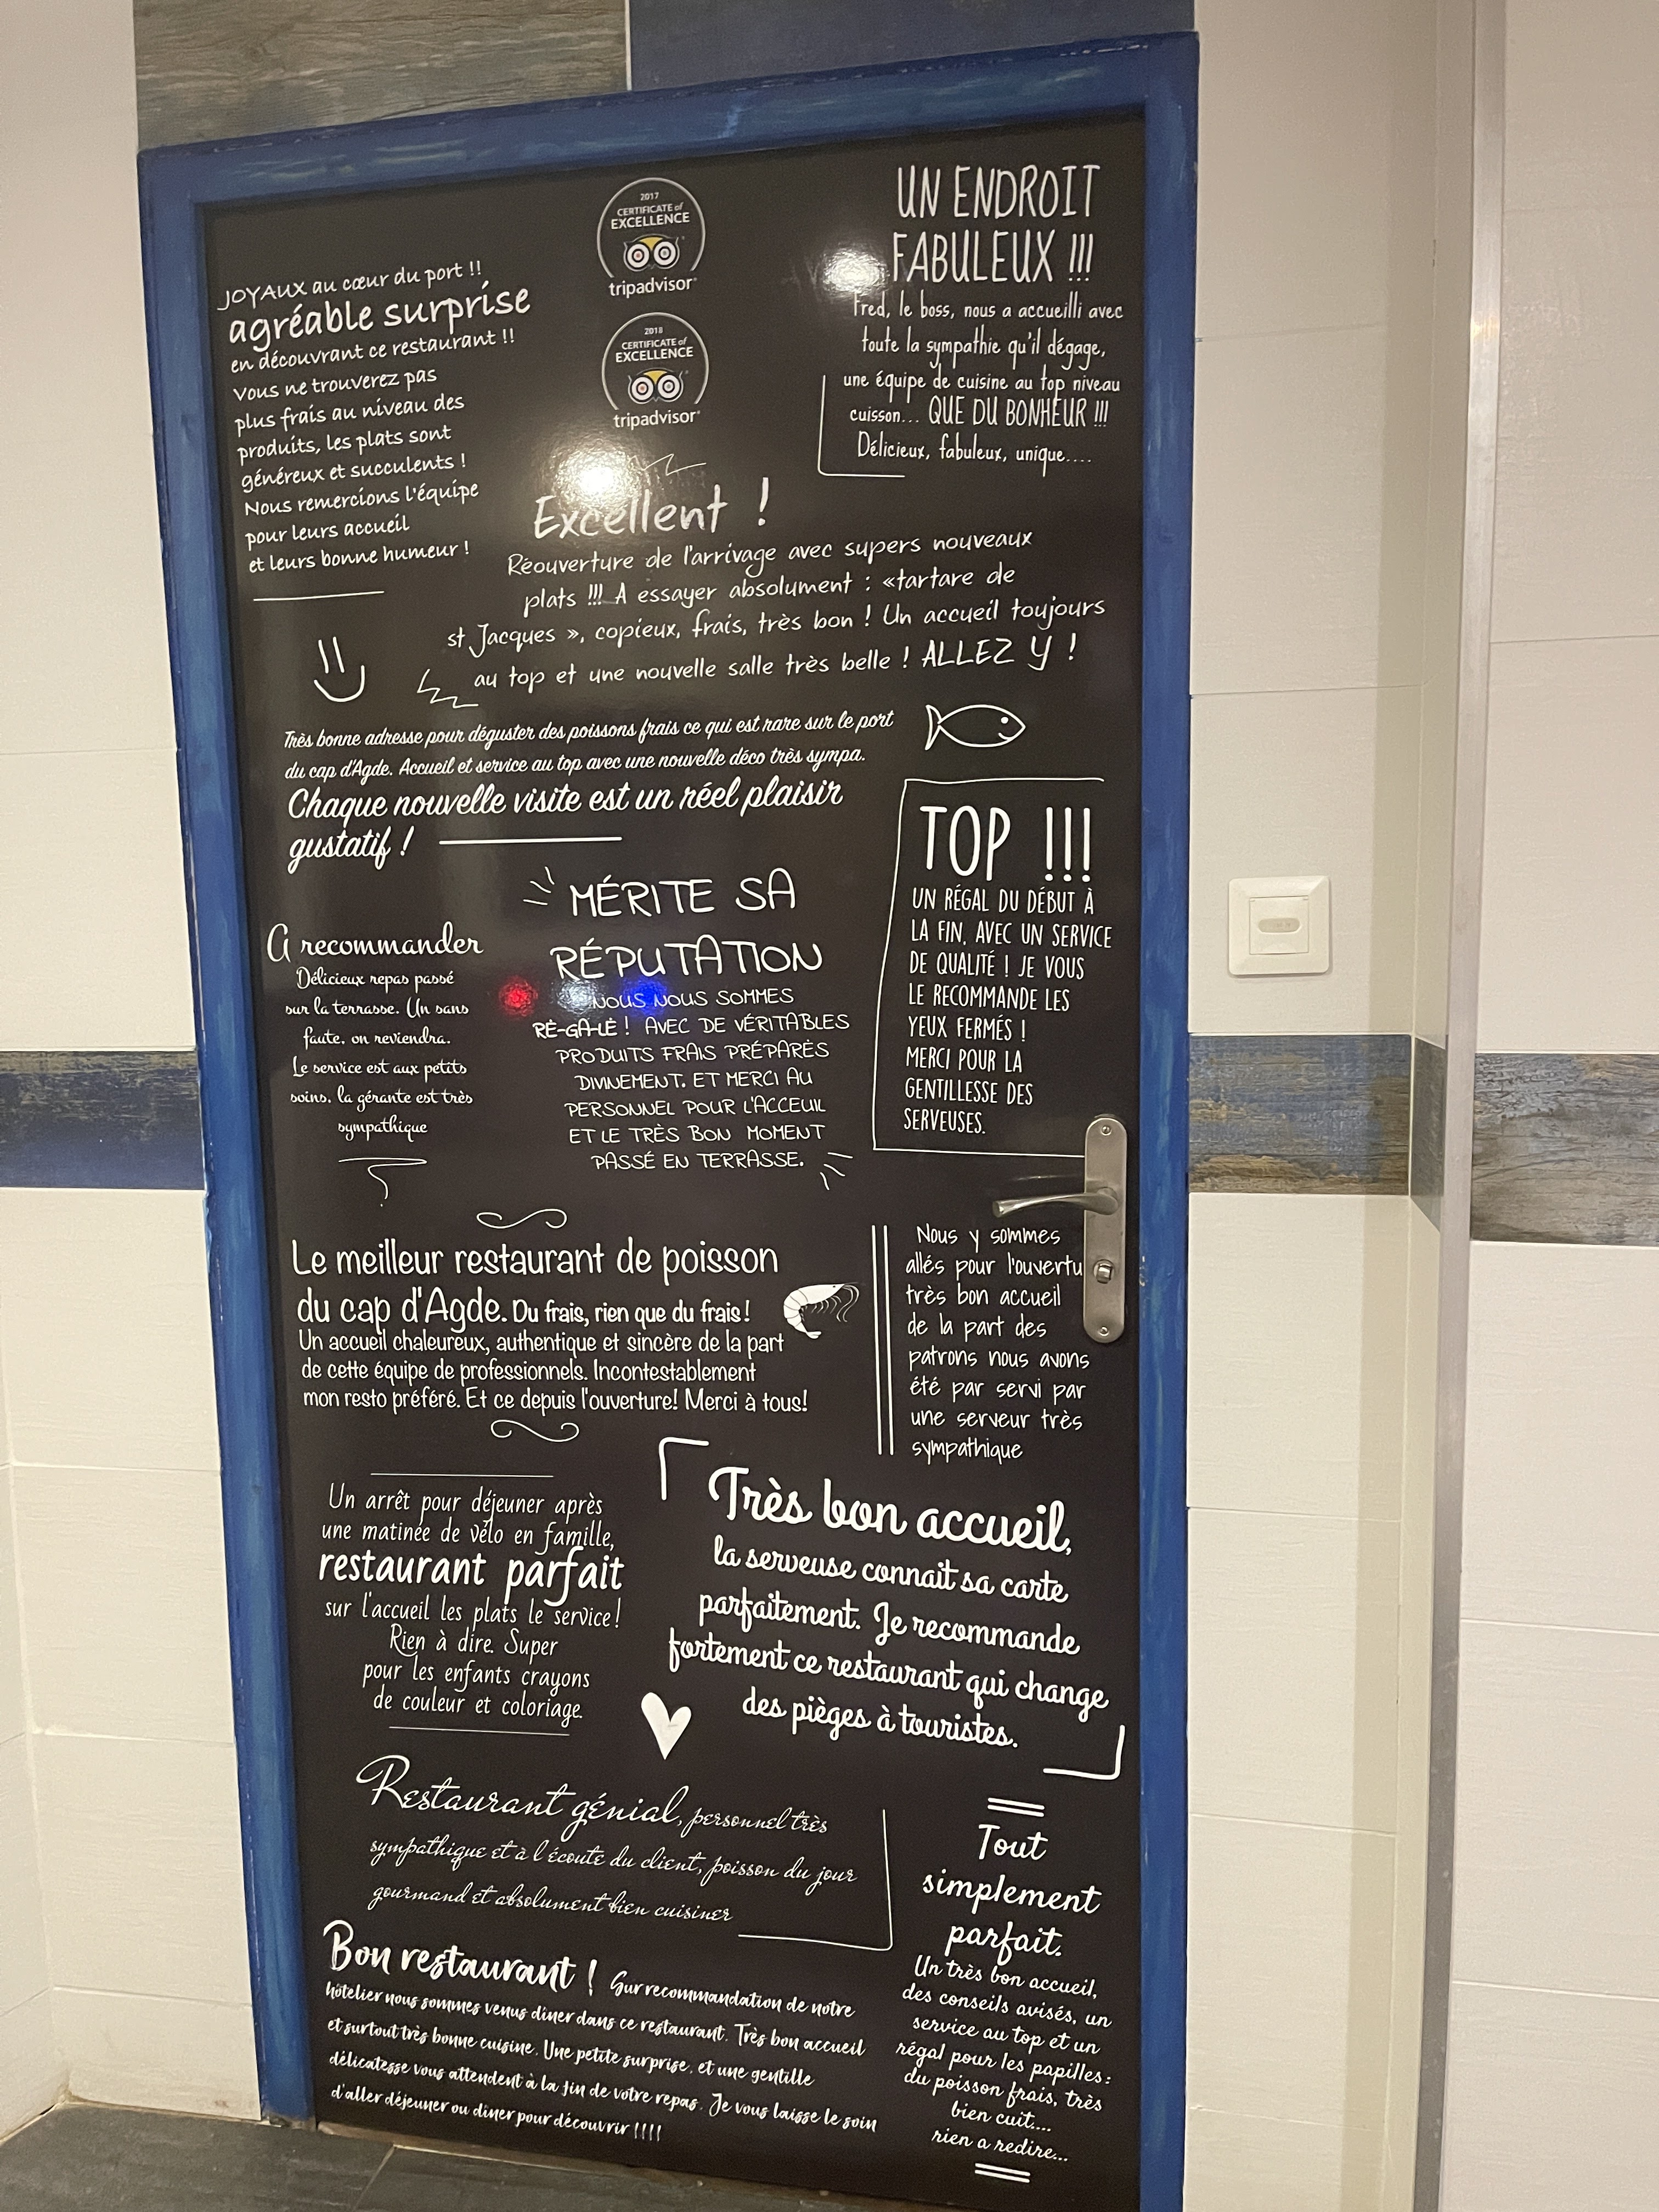 JOYAUX au cœur du port !!
agréable surprise
en découvrant ce restaurant !!
Vous ne trouverez pas
plus frais au niveau des
produits, les plats sont
généreux et succulents !
Nous remercions l'équipe
pour leurs accueil
et leurs bonne humeur !
2017
CERTIFICATE of
EXCELLENCE
tripadvisor
2018
CERTIFICATE of
EXCELLENCE
tripadvisor
UN ENDROIT
FABULEUX !!!
Fred, le boss, nous a accueilli avec
toute la sympathie qu'il dégage,
une équipe de cuisine au top niveau
cuisson... QUE DU BONHEUR !!!
Délicieux, fabuleux, unique....
Excellent !
Réouverture de l'arrivage avec supers nouveaux
plats !!! A essayer absolument : «tartare de
st Jacques », copieux, frais, très bon ! Un accueil toujours
au top et une nouvelle salle très belle ! ALLEZ Y !
Très bonne adresse pour déguster des poissons frais ce qui est rare sur le port
du cap d'Agde. Accueil et service au top avec une nouvelle déco très sympa.
Chaque nouvelle visite est un réel plaisir
gustatif !
TOP !!!
UN RÉGAL DU DÉBUT À
LA FIN, AVEC UN SERVICE
DE QUALITÉ ! JE VOUS
LE RECOMMANDE LES
YEUX FERMÉS !
MERCI POUR LA
GENTILLESSE DES
SERVEUSES.
A recommander
Délicieux repas passé
sur la terrasse. Un sans
faute, on reviendra.
Le service est aux petits
soins, la gérante est très
sympathique
MÉRITE SA
RÉPUTATION
NOUS NOUS SOMMES
RÉ-GA-LÉ ! AVEC DE VÉRITABLES
PRODUITS FRAIS PRÉPARÉS
DIVINEMENT. ET MERCI AU
PERSONNEL POUR L'ACCEUIL
ET LE TRÈS BON MOMENT
PASSÉ EN TERRASSE.
Le meilleur restaurant de poisson
du cap d'Agde. Du frais, rien que du frais !
Un accueil chaleureux, authentique et sincère de la part
de cette équipe de professionnels. Incontestablement
mon resto préféré. Et ce depuis l'ouverture! Merci à tous!
Nous y sommes
allés pour l'ouvertu
très bon accueil
de la part des
patrons nous avons
été par servi par
une serveur très
sympathique
Un arrêt pour déjeuner après
une matinée de vélo en famille,
restaurant parfait
sur l'accueil les plats le service !
Rien à dire. Super
pour les enfants crayons
de couleur et coloriage.
Très bon accueil,
la serveuse connait sa carte
parfaitement. Je recommande
fortement ce restaurant qui change
des pièges à touristes.
Restaurant génial, personnel très
sympathique et à l'écoute du client, poisson du jour
gourmand et absolument bien cuisiner
Bon restaurant ! Sur recommandation de notre
hôtelier nous sommes venus diner dans ce restaurant. Très bon accueil
et surtout très bonne cuisine. Une petite surprise, et une gentille
délicatesse vous attendent à la fin de votre repas. Je vous laisse le soin
d'aller déjeuner ou diner pour découvrir !!!!
Tout
simplement
parfait.
Un très bon accueil,
des conseils avisés, un
service au top et un
régal pour les papilles:
du poisson frais, très
bien cuit....
rien a redire...